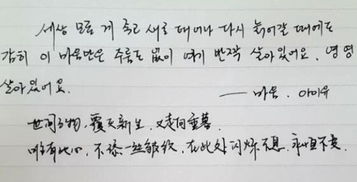 세상 모든 게 죽고 새로 태어나 다시 늙어갈 때에도
감히 이 마음만은 주름도 없이 여기 반짝 살아있어요. 영영
살아있어요.
—— 마음. 아이유
世间万物，覆灭新生，又走向垂暮
唯有此心，不添一丝皱纹，在此处闪烁不息，永恒不变.